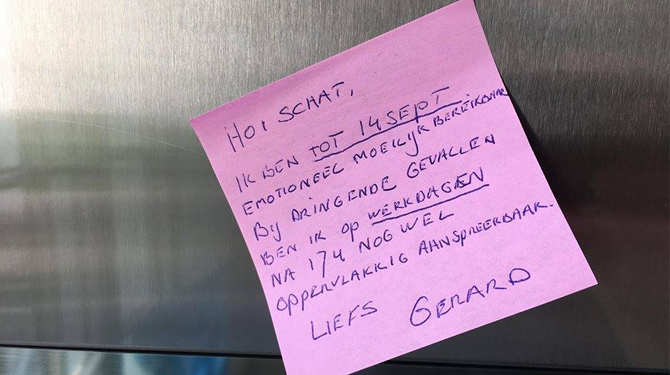 HOI SCHAT,
IK BEN TOT 14 SEPT.
EMOTIONEEL MOEILIJK BEREIKBAAR
BIJ DRINGENDE GEVALLEN
BEN IK OP WERKDAGEN
NA 17U NOG WEL
OPPERVLAKKIG AANSPREEKBAAR.
LIEFS GERARD